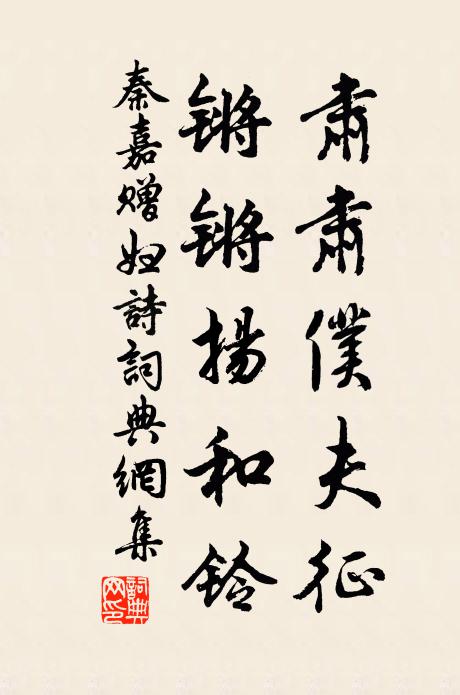 肅肅僕夫征
鏘鏘揚和鈴
秦嘉贈妇詩詞典網集
詞典
网印